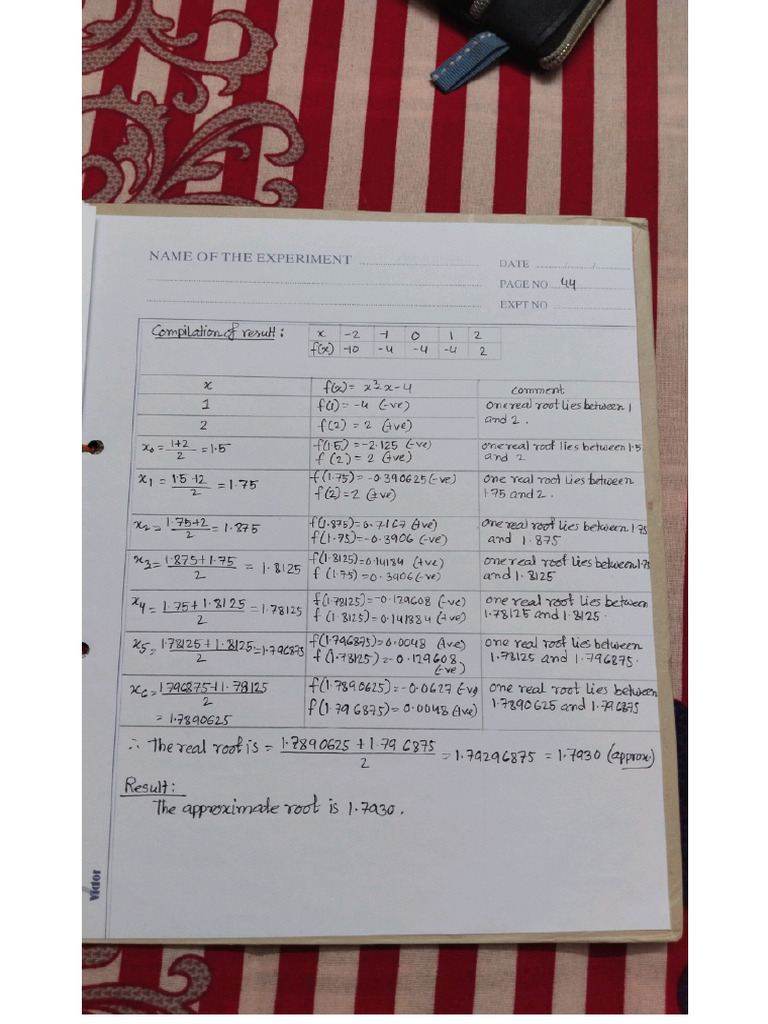 NAME OF THE EXPERIMENT
DATE ......../......../........
PAGE NO 44
EXPT NO
Compilation of result :
x -2 -1 0 1 2
f(x) -10 -4 -4 -4 2
x f(x) = x³-x-4 comment
1 f(1) = -4 (-ve) one real root lies between 1
2 f(2) = 2 (+ve) and 2.
x₀ = 1+2/2 = 1.5 f(1.5) = -2.125 (-ve) one real root lies between 1.5
f(2) = 2 (+ve) and 2
x₁ = 1.5+2/2 = 1.75 f(1.75) = -0.390625 (-ve) one real root lies between
f(2) = 2 (+ve) 1.75 and 2.
x₂ = 1.75+2/2 = 1.875 f(1.875) = 0.7167 (+ve) one real root lies between 1.75
f(1.75) = -0.3906 (-ve) and 1.875
x₃ = 1.875+1.75/2 = 1.8125 f(1.8125) = 0.14184 (+ve) one real root lies between 1.75
f(1.75) = 0.3906 (-ve) and 1.8125
x₄ = 1.75+1.8125/2 = 1.78125 f(1.78125) = -0.129608 (-ve) one real root lies between
f(1.8125) = 0.141884 (+ve) 1.78125 and 1.8125.
x₅ = 1.78125+1.8125/2 = 1.796875 f(1.796875) = 0.0048 (+ve) one real root lies between
f(1.78125) = -0.129608 (-ve) 1.78125 and 1.796875.
x₆ = 1.796875+1.78125/2 f(1.7890625) = -0.0627 (-ve) one real root lies between
= 1.7890625 f(1.796875) = 0.0048 (+ve) 1.7890625 and 1.796875
∴ The real root is = 1.7890625 + 1.796875/2 = 1.79296875 = 1.7930 (approx.)
Result:
The approximate root is 1.7930.
Victor